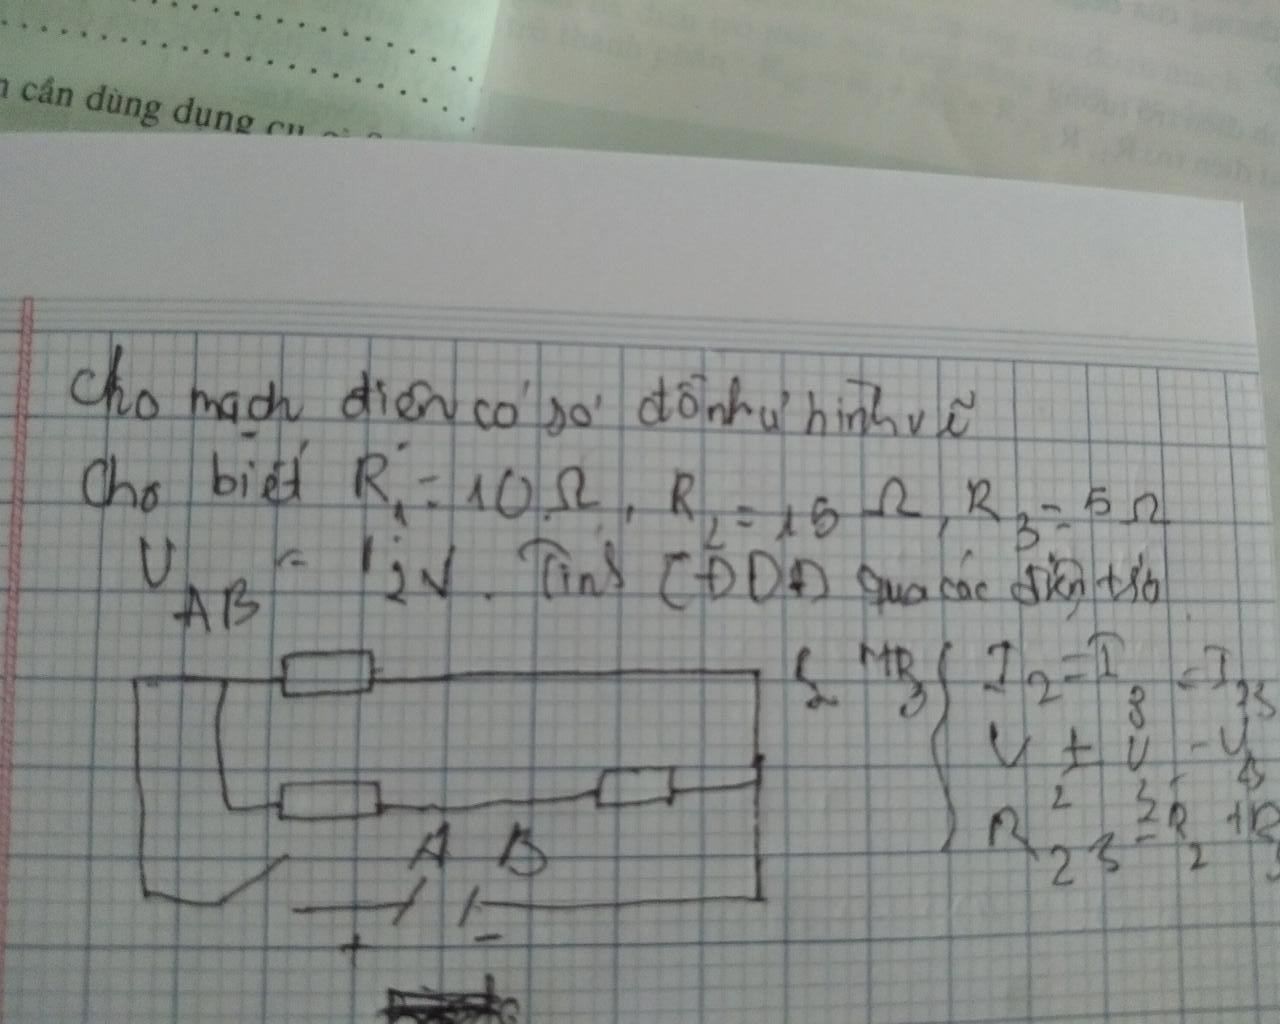 n cần dùng dụng cụ gì?
Cho mạch điện có sơ đồ như hình vẽ
Cho biết R1 = 10 Ω, R2 = 15 Ω, R3 = 5 Ω
UAB = 12V. Tính CĐDĐ qua các điện trở
I2 = I3 = I23
U2 + U3 = U23
R23 = R2 + R3
A B
+ -